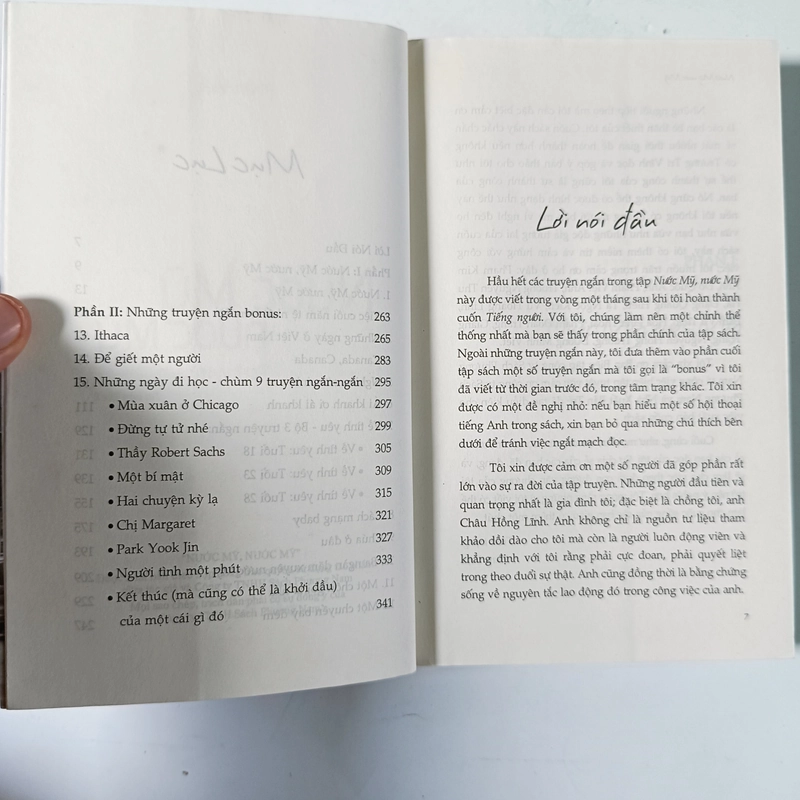 Phần II: Những truyện ngắn bonus: 263
13. Ithaca 265
14. Để giết một người 283
15. Những ngày đi học - chùm 9 truyện ngắn-ngắn 295
• Mùa xuân ở Chicago 297
• Đừng tự tử nhé 299
• Thầy Robert Sachs 305
• Một bí mật 309
• Hai chuyện kỳ lạ 315
• Chị Margaret 321
• Park Yook Jin 327
• Người tình một phút 333
• Kết thúc (mà cũng có thể là khởi đầu)
của một cái gì đó 341
Lời nói đầu
Hầu hết các truyện ngắn trong tập Nước Mỹ, nước Mỹ
này được viết trong vòng một tháng sau khi tôi hoàn thành
cuốn Tiếng người. Với tôi, chúng làm nên một chỉnh thể
thống nhất mà bạn sẽ thấy trong phần chính của tập sách.
Ngoài những truyện ngắn này, tôi đưa thêm vào phần cuối
tập sách một số truyện ngắn mà tôi gọi là “bonus” vì tôi
đã viết từ thời gian trước đó, trong tâm trạng khác. Tôi xin
được có một đề nghị nhỏ: nếu bạn hiểu một số hội thoại
tiếng Anh trong sách, xin bạn bỏ qua những chú thích bên
dưới để tránh việc ngắt mạch đọc.
Tôi xin được cảm ơn một số người đã góp phần rất
lớn vào sự ra đời của tập truyện. Những người đầu tiên và
quan trọng nhất là gia đình tôi; đặc biệt là chồng tôi, anh
Châu Hồng Lĩnh. Anh không chỉ là nguồn tư liệu tham
khảo dồi dào cho tôi mà còn là người luôn động viên và
khẳng định với tôi rằng phải cực đoan, phải quyết liệt
trong theo đuổi sự thật. Anh cũng đồng thời là bằng chứng
sống về nguyên tắc lao động đó trong công việc của anh.
7